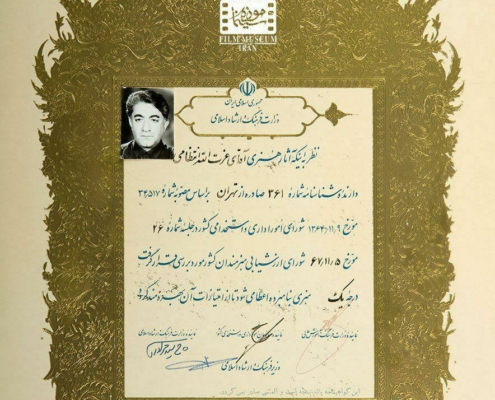 موزه سینما
FILM MUSEUM
IRAN
جمهوری اسلامی ایران
وزارت فرهنگ و ارشاد اسلامی
نظر به اینکه آثار هنری آقای عزت الله انتظامی
دارنده شناسنامه شماره ۳۶۱ صادره از تهران براساس مصوبه شماره ۳۴۵۱۷
مورخ ۱۳۶۴/۱۱/۹ شورای امور اداری و استخدامی کشور در جلسه شماره ۲۶
مورخ ۶۷/۱۱/۵ شورای ارزشیابی هنرمندان کشور مورد بررسی قرار گرفت
درجه یک هنری بنامبرده اعطا می شود تا از امتیازات آن بهره مند گردد
نماینده وزارت فرهنگ و آموزش عالی نماینده سازمان امور اداری و استخدامی کشور نماینده وزارت فرهنگ و ارشاد اسلامی
وزیر فرهنگ و ارشاد اسلامی